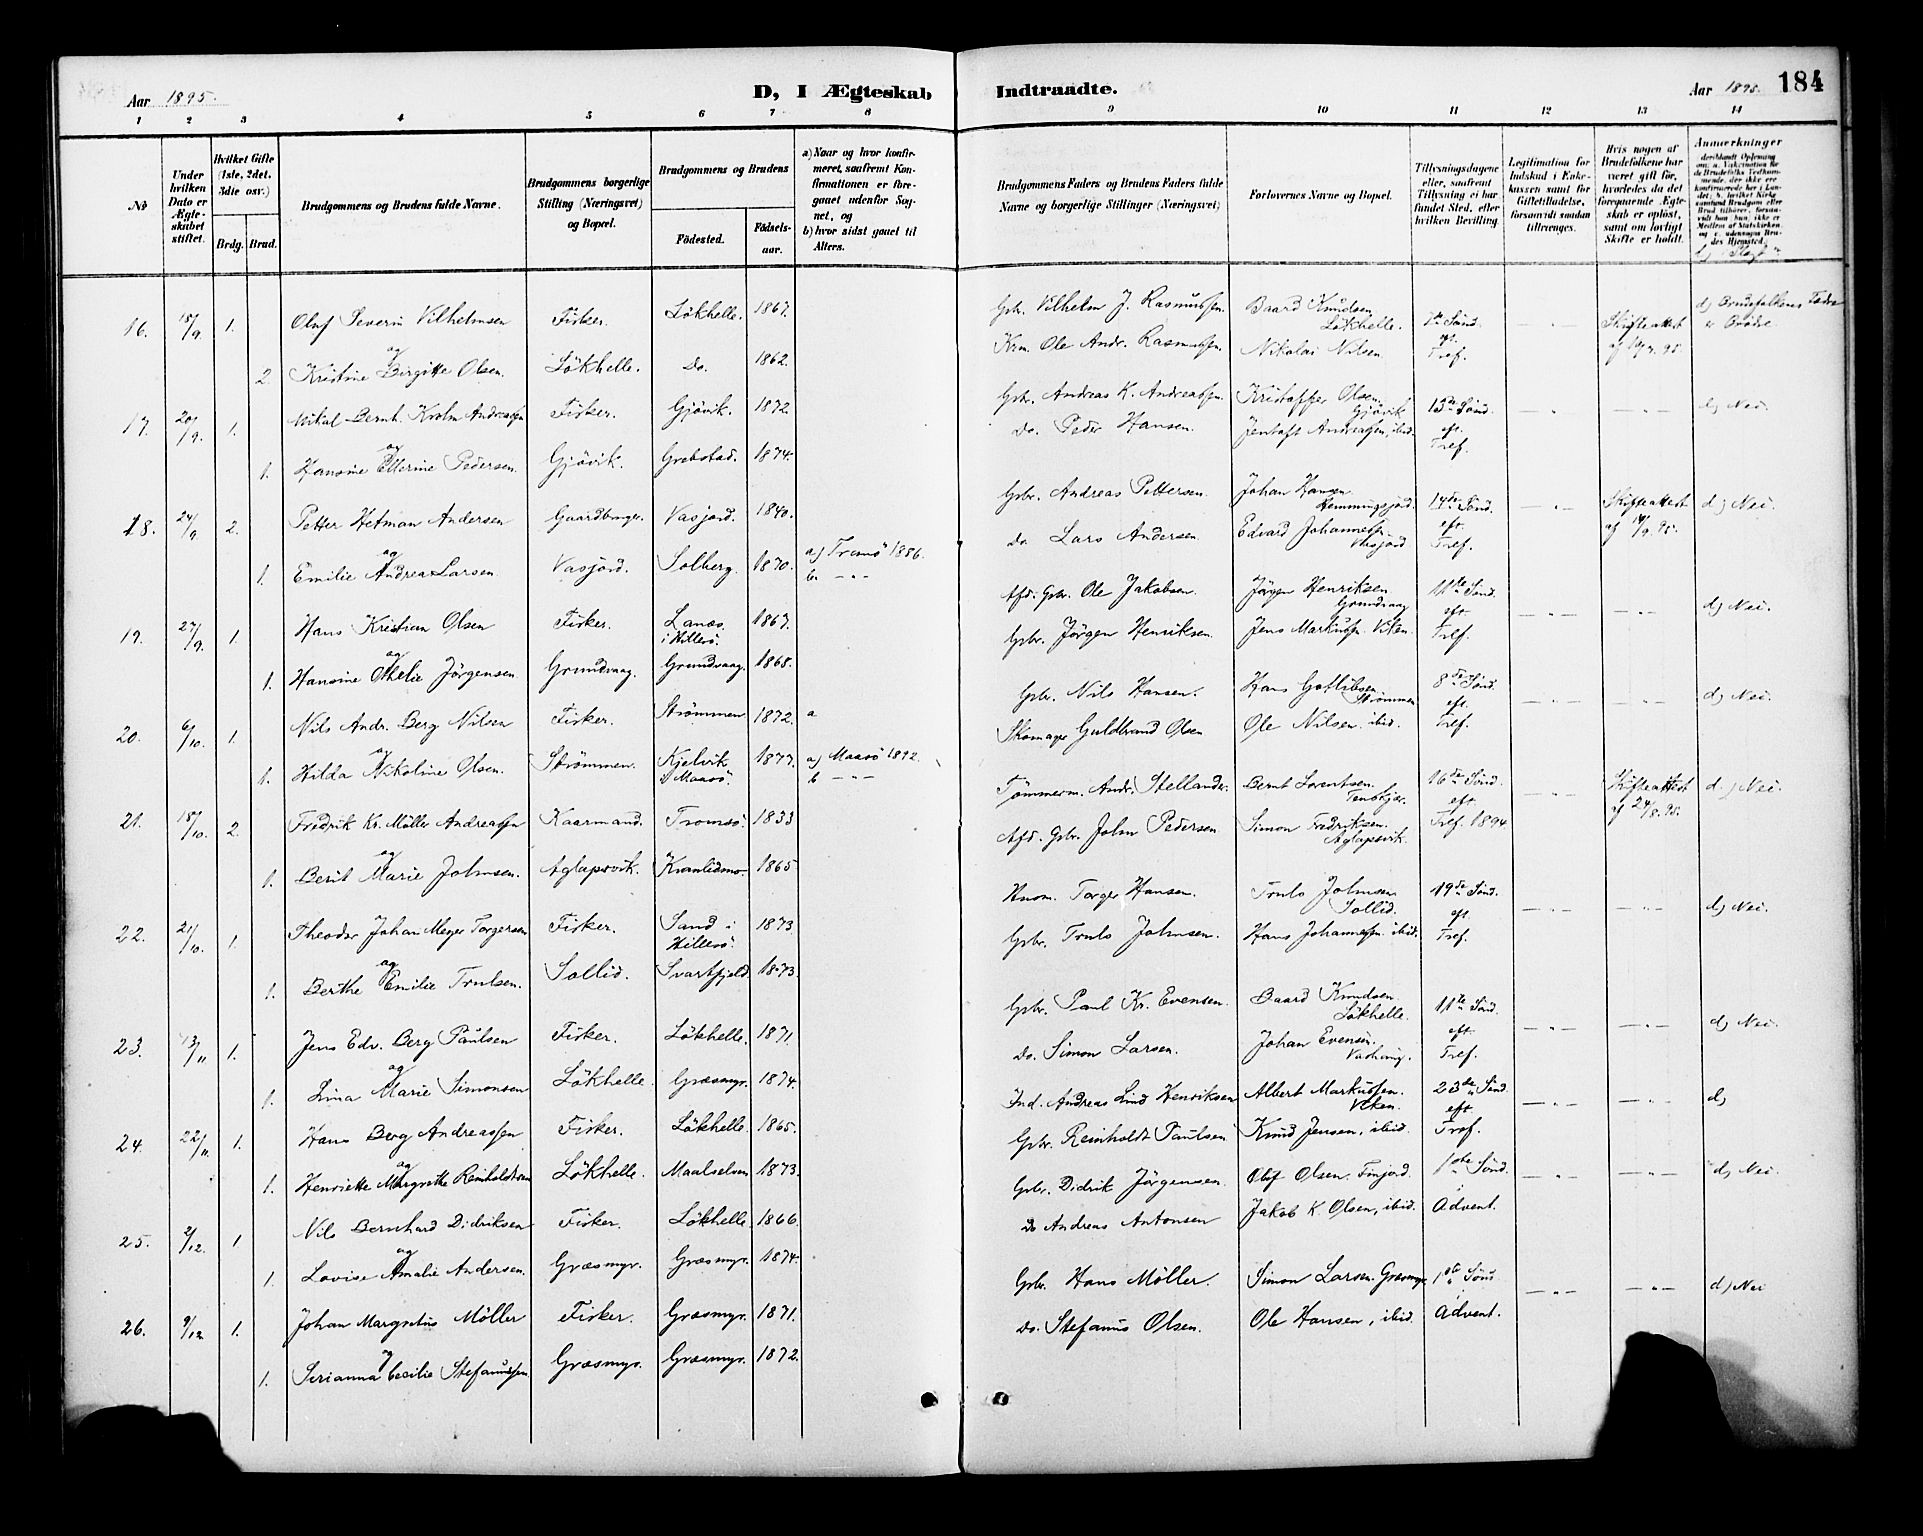 Aar 1895.
D, I Ægteskab
Indtraadte.
Aar 1895.
184
1 2 3 4 5 6 7 8 9 10 11 12 13 14
No
Under hvilken Dato er Ægteskabet stiftet.
Hvilket Gifte (1ste, 2det, 3die osv.)
Brdg. Brud.
Brudgommens og Brudens fulde Navne.
Brudgommens borgerlige Stilling (Næringsvei) og Bopæl.
Brudgommens og Brudens
Fødested.
Fødselsaar.
a) Naar og hvor konfirmeret, saafremt Konfirmationen er foregaaet udenfor Sognet, og
b) hvor sidst gaaet til Alters.
Brudgommens Faders og Brudens Faders fulde Navne og borgerlige Stillinger (Næringsvei)
Forlovernes Navne og Bopæl.
Tillysningsdagene eller, saafremt Tillysning ei har fundet Sted, efter hvilken Bevilling.
Legitimation for Indskud i Enkekassen samt for Giftetilladelse, forsaavidt saadan tiltrænges.
Hvis nogen af Brudefolkene har været gift før, hvorledes da det foregaaende Ægteskab er opløst, samt om lovligt Skifte er holdt.
Anmærkninger
16. 15/9. 1. Oluf Severin Vilhelmsen Fisker. Lökhelle. 1867. Gbr. Vilhelm J. Rasmussen. Baard Knudsen Lökhelle. 7de Sönd. — " — Skifteattest d) Brudefolkenes Fædre er Brödre
og
2. Kristine Birgitte Olsen. Lökhelle. Do. 1862. Krm. Ole Andr. Rasmussen. Nikolai Nilsen eft. Tref.
17. 20/9. 1. Mikal Bernh. Krohn Andreassen Fisker. Gjövik. 1872. Gbr. Andreas K. Andreassen Kristoffer Olsen. Gjövik 13de Sönd. — " — — " — d) Nei.
og
1. Hansine Ellerine Pedersen. Gjövik. Grebstad. 1874. Do. Peder Hansen. Jentoft Andreassen, ibid. eft. Tref.
18. 24/9. 2. Petter Hetman Andersen Gaardbruger. Vasjord. 1840. Gbr. Andreas Pettersen. Johan Hansen Hemmingsjord. 14de Sönd. — " — Skifteattest d) Nei
og
1. Emilie Andrea Larsen. Vasjord. Solberg. 1870. a) Tromsö 1886. b. — " — Do. Lars Andersen. Edvard Johannessen Vasjord eft. Tref.
19. 27/9. 1. Hans Kristian Olsen Fisker. Lanes i Hillesö. 1867. Afd. Gbr. Ole Jakobsen. Jörgen Henriksen Grundvaag 11te Sönd. — " — — " — d) Nei.
og
1. Hansine Othelie Jörgensen Grundvaag. Grundvaag. 1868. Gbr. Jörgen Henriksen. Jens Markussen Viken. eft. Tref.
20. 6/10. 1. Nils Andr. Berg Nilsen Fisker. Strömmen 1872. a Gbr. Nils Hansen. Hans Gotlibsen Strömmen 8de Sönd. — " — — " — d) Nei.
og
1. Hilda Nikoline Olsen. Strömmen. Kjelvik i Maasö. 1877. a) Maasö 1892. b — " — Skomager Guldbrand Olsen Ole Nilsen ibid. eft. Tref.
21. 18/10. 2. Fredrik Kr. Möller Andreassen Kaarmand. Tromsö. 1833 Tömmerm. Andr. Stellander. Bernt Lorentsen. Tenskjær. 16de Sönd. — " — Skifteattest af 24/8. 95. d.) Nei.
og
1. Berit Marie Johnsen. Aglapsvik. Kvanlidmo. 1865 Afd. Gbr. John Pedersen Simon Fredriksen. Aglapsvik. eft. Tref. 1894.
22. 21/10. 1. Theodor Johan Meyer Torgersen Fisker. Sand i Hillesö. 1873 Husm. Torger Hansen. Truls Johnsen Sollid. 19de Sönd. — " — — " — d) Nei.
og
1. Berthe Emilie Trulsen. Sollid. Svartfjeld. 1873. Gbr. Truls Johnsen. Hans Johannessen ibid. eft. Tref.
23. 13/11 1. Jens Edv. Berg Paulsen Fisker. Lökhelle. 1871. Gbr. Paul Kr. Evensen. Baard Knudsen Lökhelle. 11te Sönd. — " — — " — d) Nei.
og
1. Lina Marie Simonsen Lökhelle. Græsmyr. 1874. Do. Simon Larsen. Johan Evensen. eft. Tref.
24. 22/11. 1. Hans Berg Andreassen Fisker. Lökhelle. 1865. Ind. Andreas Lind Henriksen Albert Markussen. Viken. 23de Sönd — " — — " — d)
og
1. Henriette Margrethe Reinholdtsen Lökhelle. Maalselven 1873. Gbr. Reinholdt Paulsen Knud Jensen, ibid. eft. Tref.
25. 2/12. 1. Nils Bernhard Didriksen Fisker. Lökhelle. 1866. Gbr. Didrik Jörgensen. Olof Olsen. Finjord. 1ste Sönd. — " — — " — d) Nei.
og
1. Lovise Amalie Andersen. Græsmyr. Græsmyr. 1874. Do Andreas Antonsen Jakob K. Olsen, ibid. i Advent.
26. 9/12. 1. Johan Margretus Möller Fisker. Græsmyr. 1871. Gbr. Hans Möller. Simon Larsen. Græsmyr. 1ste Sönd. — " — — " — d) Nei
og
1. Serianna Cecilie Stefanussen. Græsmyr. Græsmyr. 1872. Do. Stefanus Olsen. Ole Hansen, ibid. i Advent.